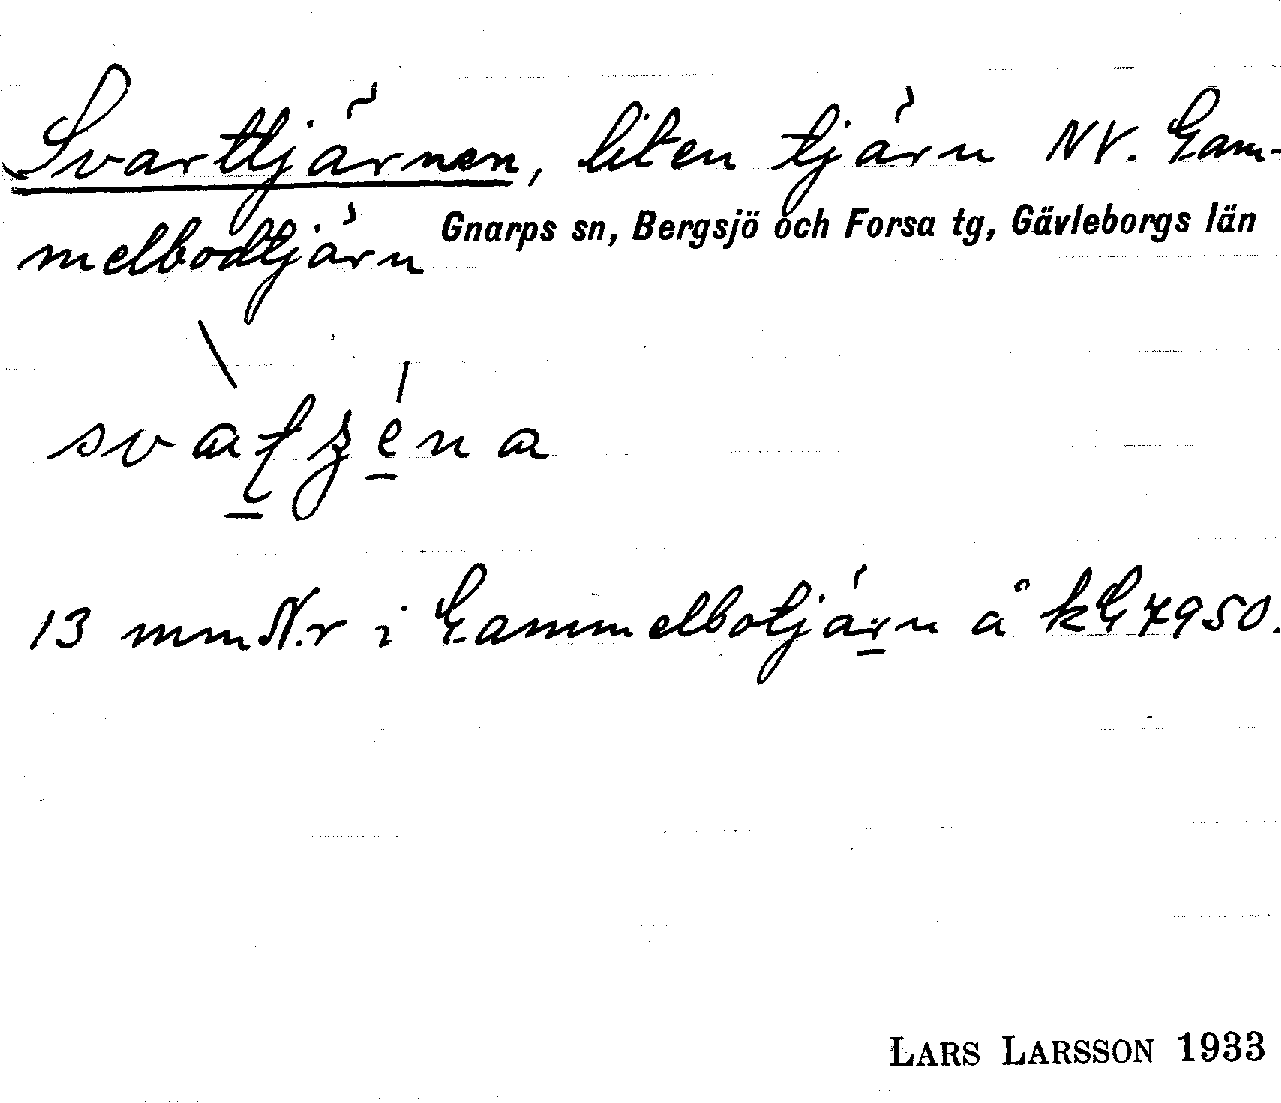 Svarttjärnen, liten tjärn NV. Gam-
melbodtjärn
Gnarps sn, Bergsjö och Forsa tg, Gävleborgs län
13 mm N.r i Gammelbotjärn å kG 7950.
LARS LARSSON 1933